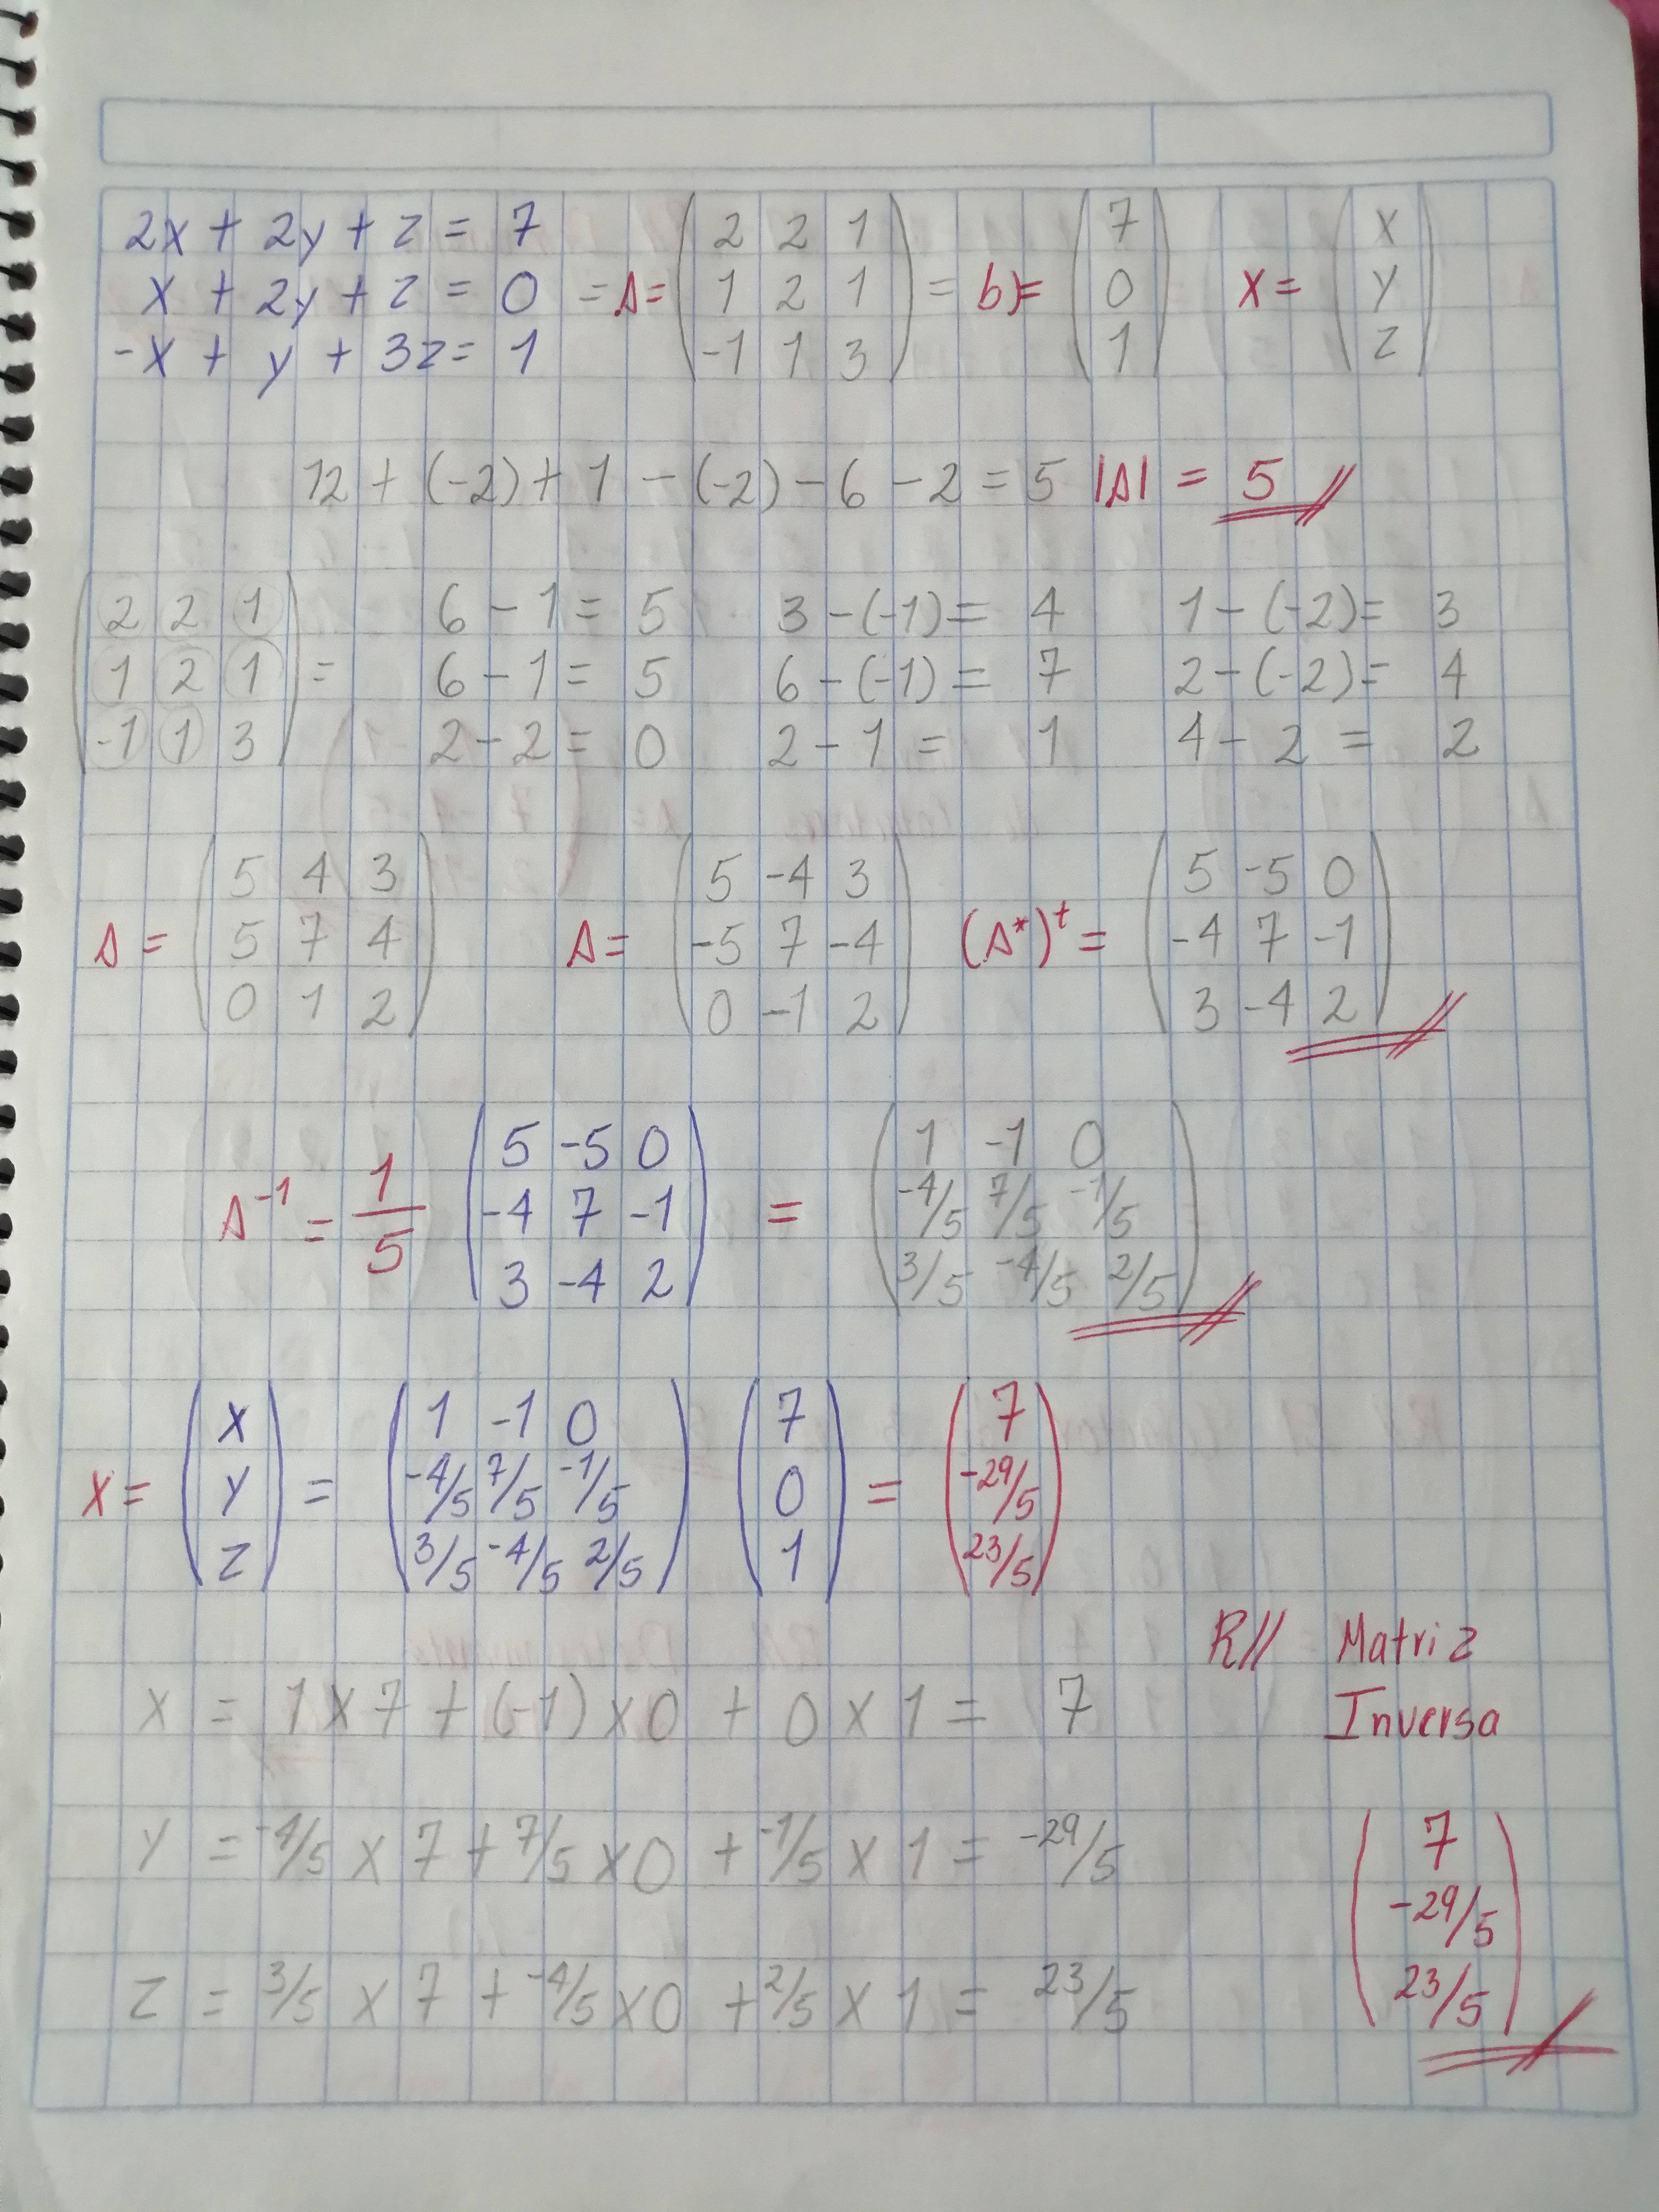 2x + 2y + z = 7
x + 2y + z = 0 = A= (2 2 1 / 1 2 1 / -1 1 3) = b)= (7 / 0 / 1) X = (x / y / z)
-x + y + 3z = 1
12 + (-2) + 1 - (-2) - 6 - 2 = 5 |A| = 5
(2 2 1 6 - 1 = 5 3 - (-1) = 4 1 - (-2) = 3
1 2 1 = 6 - 1 = 5 6 - (-1) = 7 2 - (-2) = 4
-1 1 3) 2 - 2 = 0 2 - 1 = 1 4 - 2 = 2
A = (5 4 3 / 5 7 4 / 0 1 2) A = (5 -4 3 / -5 7 -4 / 0 -1 2) (A*)t = (5 -5 0 / -4 7 -1 / 3 -4 2)
A-1 = 1/5 (5 -5 0 / -4 7 -1 / 3 -4 2) = (1 -1 0 / -4/5 7/5 -1/5 / 3/5 -4/5 2/5)
X = (x / y / z) = (1 -1 0 / -4/5 7/5 -1/5 / 3/5 -4/5 2/5) (7 / 0 / 1) = (7 / -29/5 / 23/5)
R// Matriz
Inversa
X = 1 x 7 + (-1) x 0 + 0 x 1 = 7
Y = -4/5 x 7 + 7/5 x 0 + -1/5 x 1 = -29/5
Z = 3/5 x 7 + -4/5 x 0 + 2/5 x 1 = 23/5
(7
-29/5
23/5)